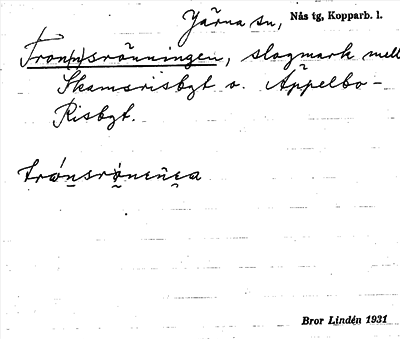 Järna sn, Nås tg, Kopparb. l.
Tron(n)srönningen, slogmark mell
Skamsrisbgt o. Äppelbo-
Risbgt.
Bror Lindén 1931